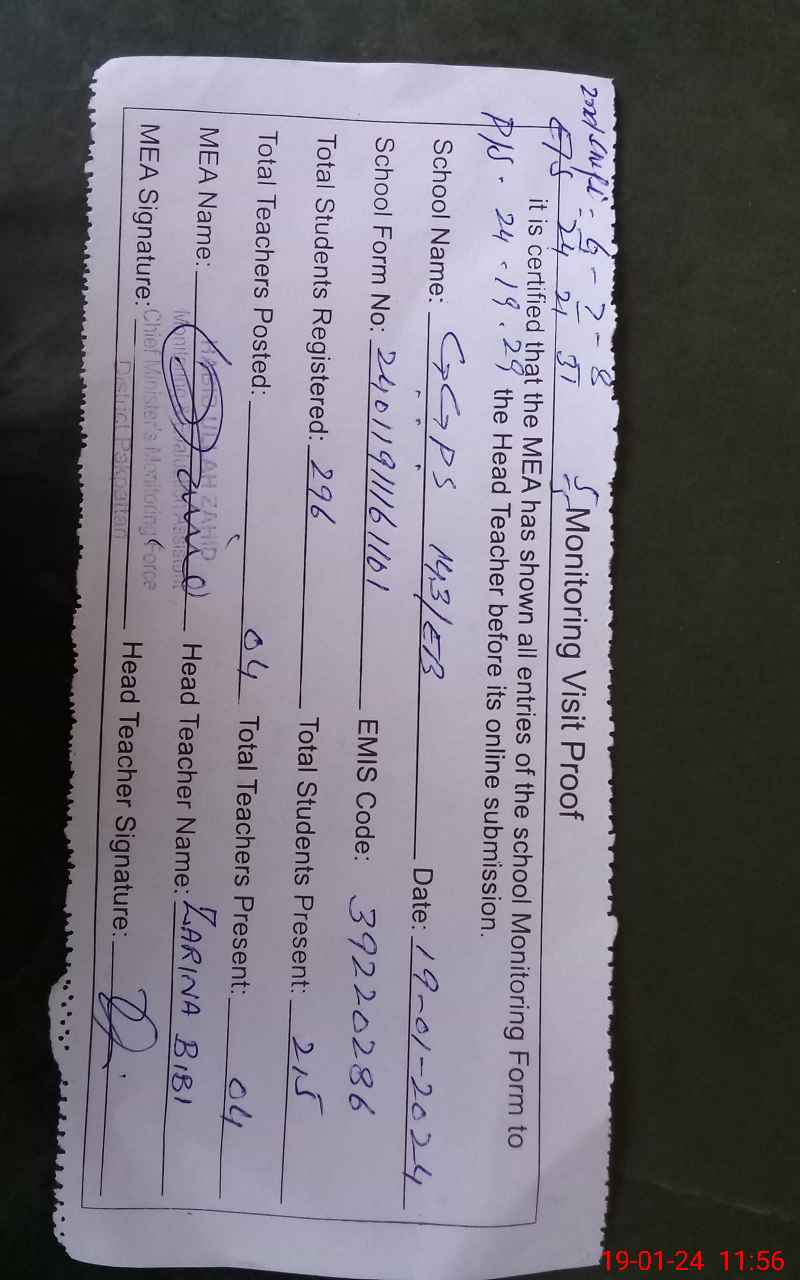 6 - 7 - 8
E/S 24 21 31
Monitoring Visit Proof
it is certified that the MEA has shown all entries of the school Monitoring Form to
P/S . 24 . 19 . 29 the Head Teacher before its online submission.
School Name: GGPS 143/EB Date: 19-01-2024
School Form No: 24011911161101 EMIS Code: 39220286
Total Students Registered: 296 Total Students Present: 215
Total Teachers Posted: 04 Total Teachers Present: 04
MEA Name: HABIB ULLAH ZAHID Head Teacher Name: ZARINA BIBI
Monitoring & Evaluation Assistant
Chief Minister's Monitoring Force
MEA Signature: Head Teacher Signature:
District Pakpattan
19-01-24 11:56